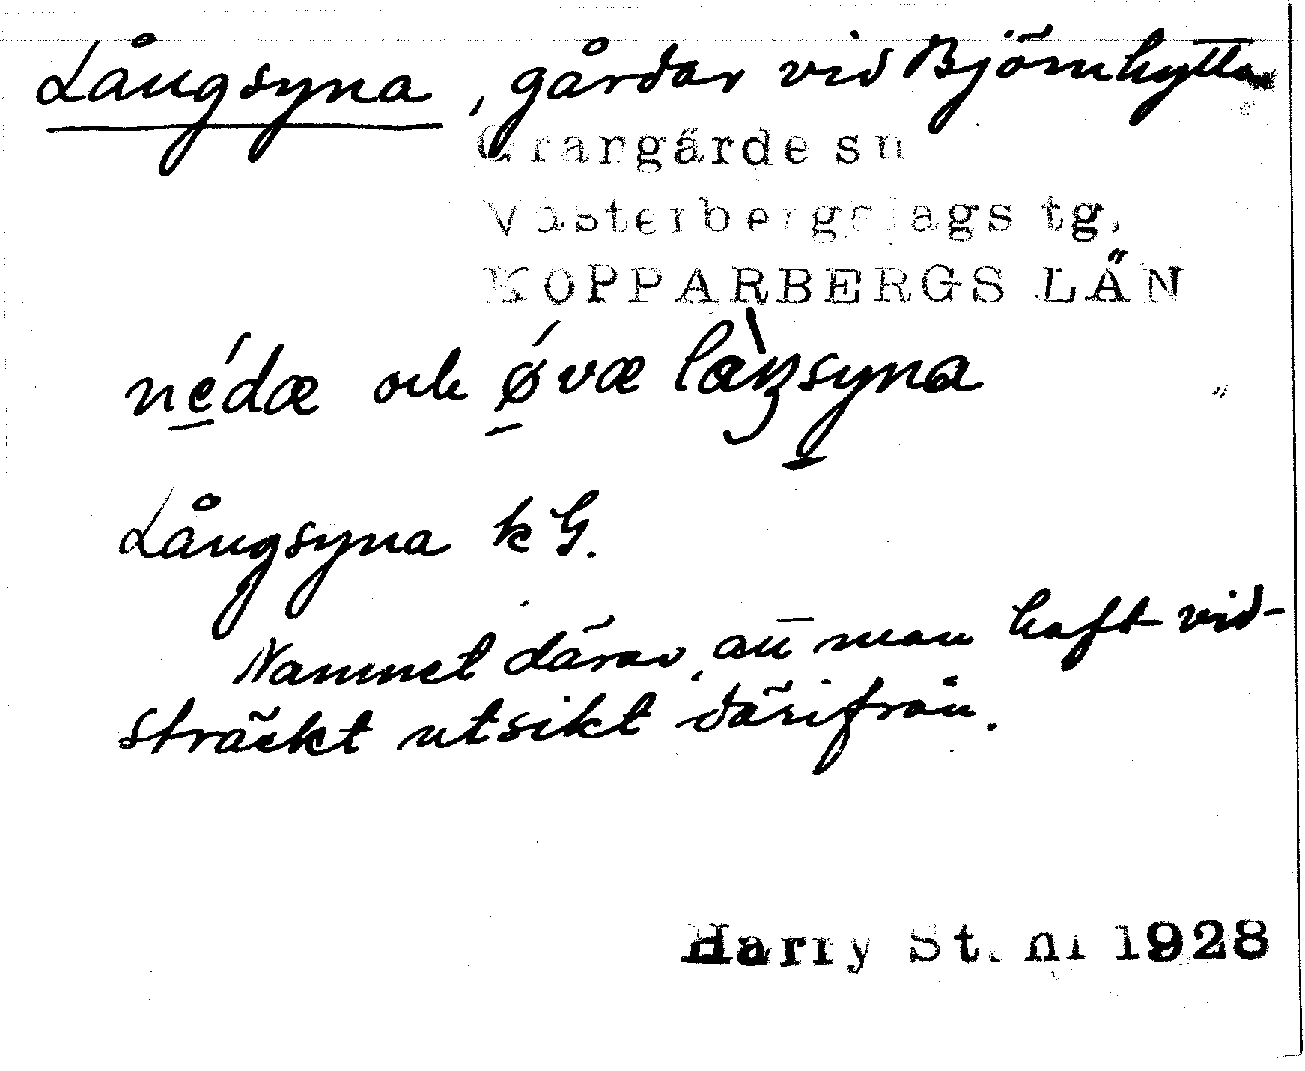 Långsyna, gårdar vid Björnhyttan
Grangärde sn
Västerbergslags tg.
KOPPARBERGS LÄN
né̱dæ och ǿ̱væ làŋsyna
Långsyna kG.
Namnet därav, att man haft vid-
sträckt utsikt därifrån.
Harry St. nl 1928